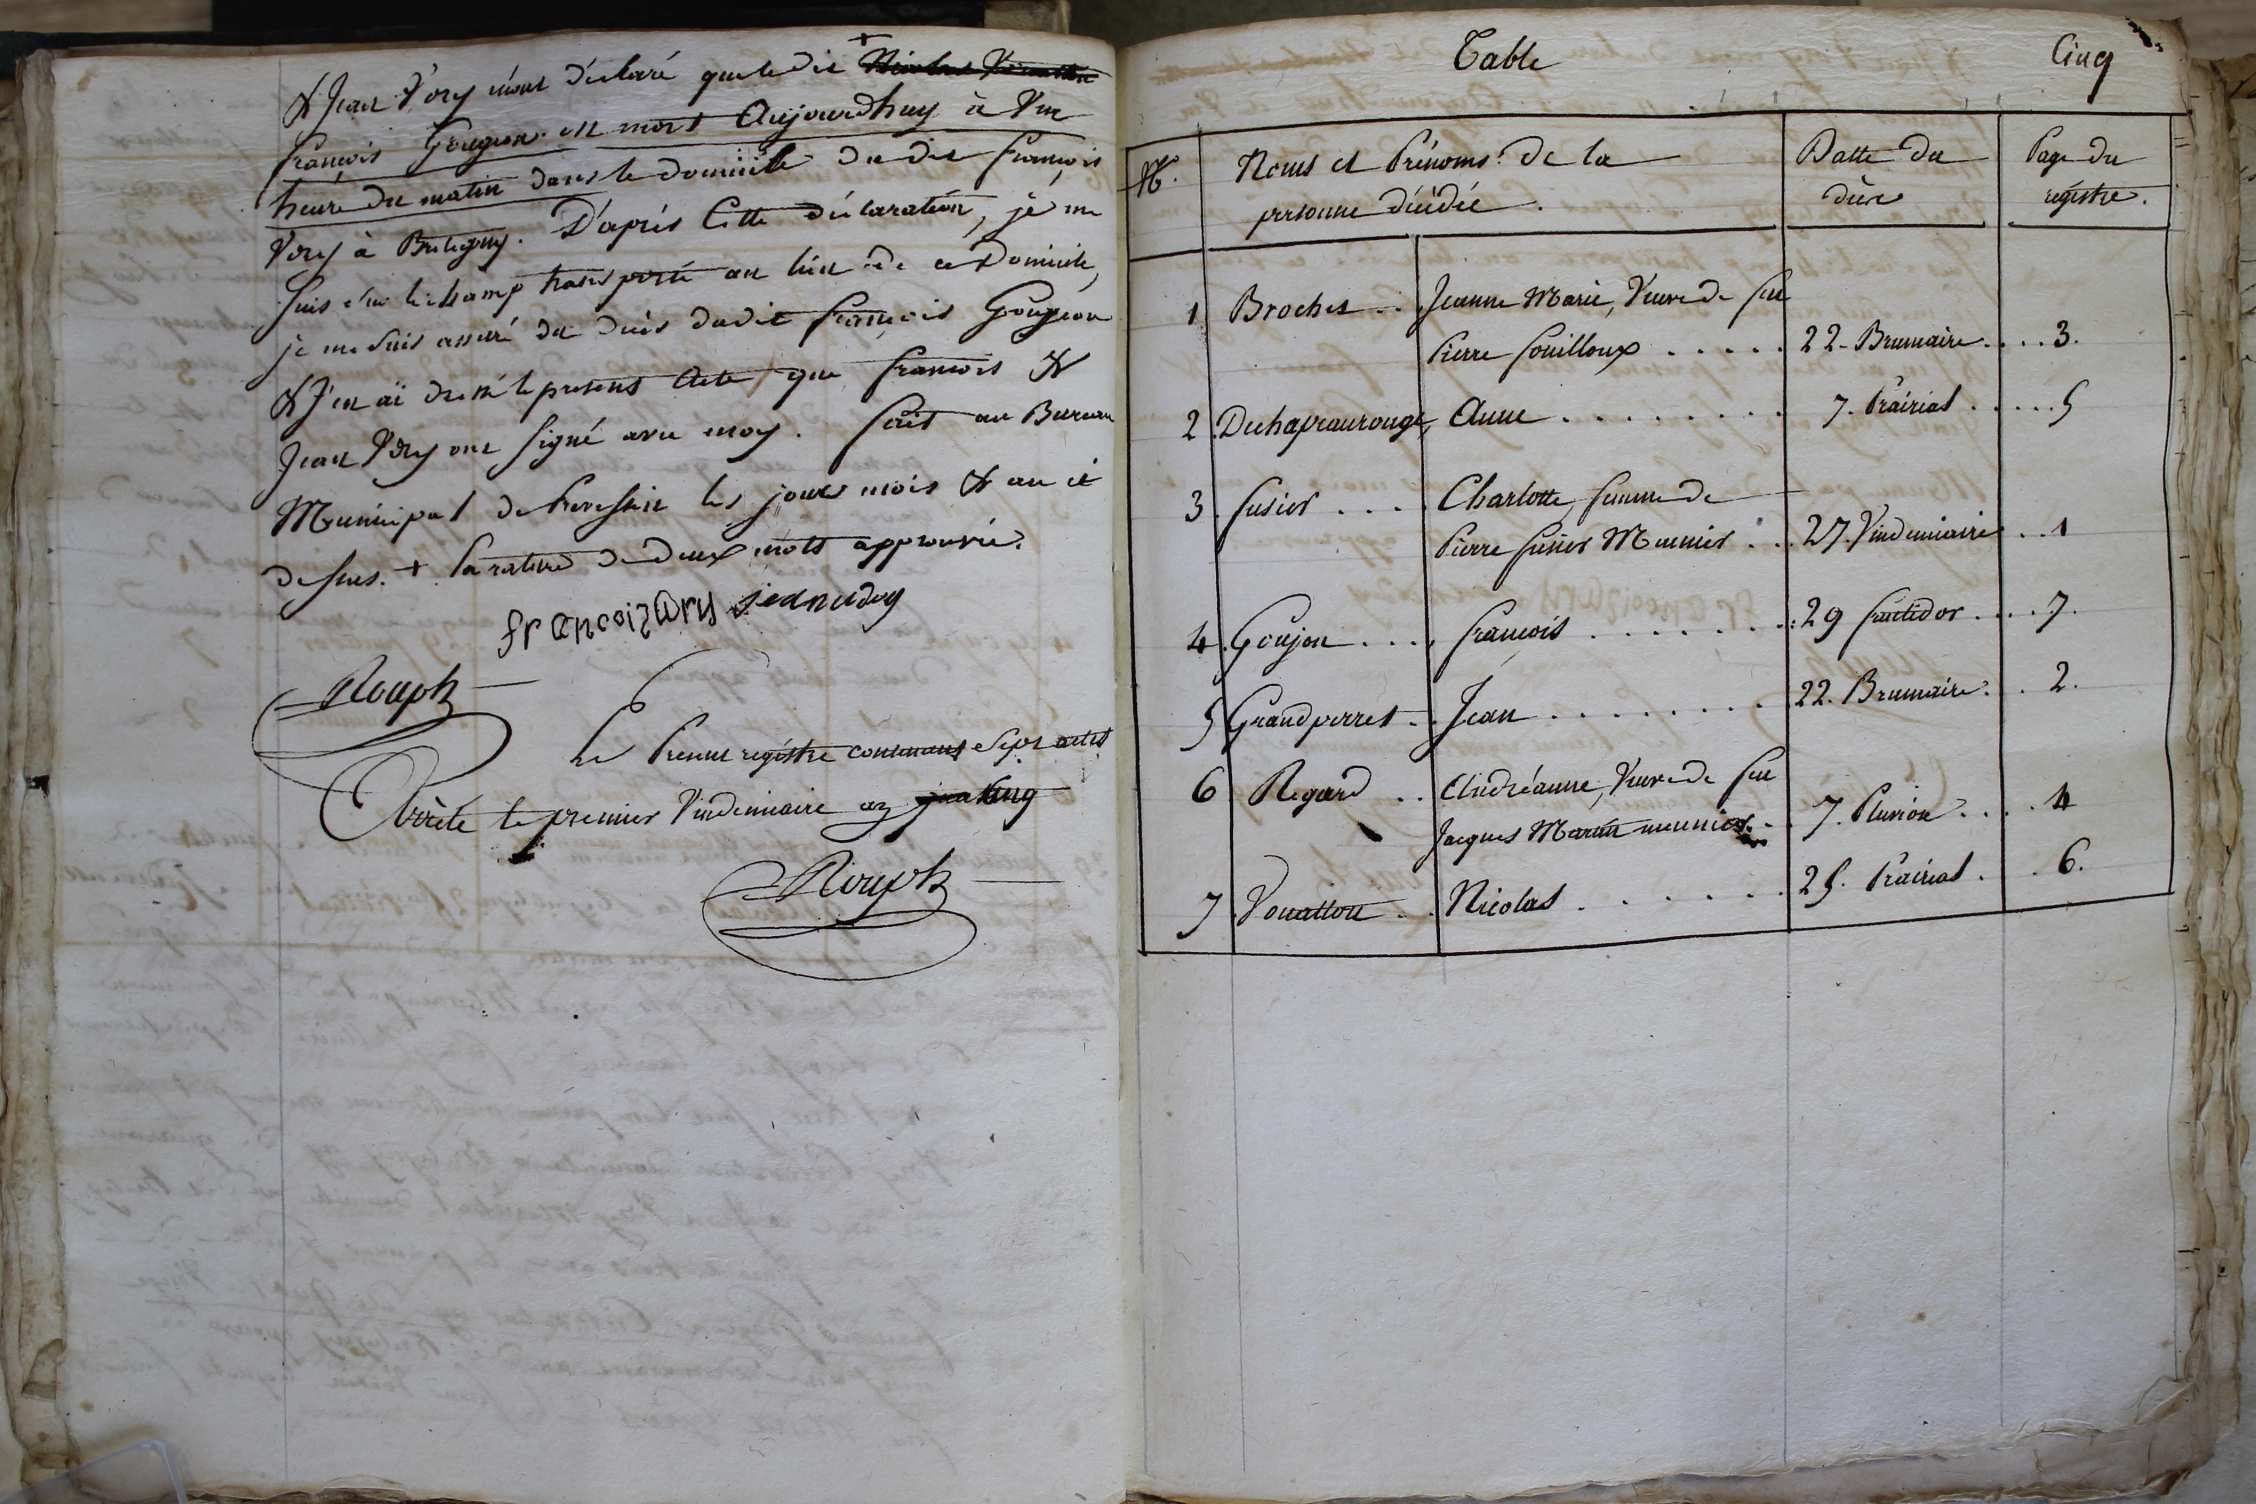 & Jean Vory m'ont déclaré que le dit + Nicolas Vouaillon
François Gougeon est mort Aujourdhuy à Une
heure du matin dans le domicile du dit François
Vory à Bretigny. D'après Cette déclaration, je me
suis sur le champ transporté au lieu de ce Domicile,
je me suis assuré du décès dudit françois Gougeon
& J'en aï dressé le présent Acte que françois &
Jean Vory ont signé avec moy. fait au Bureau
Municipal de Prevessin les jours mois & an cï
dessus. + la rature de deux mots approuvée.
françoisvory jeanvory
Rouph
Le Present registre contenant sept actes
Arrêté le premier Vindemiaire an
Rouph
Table
Cinq
N°. Noms et Prénoms de la personne décédée. Datte du décès Page du régistre.
1 Broches .. Jeanne Marie, Veuve de feu
Pierre fouilloux ..... 22. Brumaire .... 3.
2 Dechapeaurouge, Anne ........ 7. Prairial ..... 5
3 fusier .... Charlotte, femme de
Pierre fusier Meunier ... 27. Vindemiaire .. 1
4 Goujon .... françois ....... 29 fructidor .... 7.
5 Grandperret .. Jean ........ 22. Brumaire. . 2.
6 Regard .. Andréanne, Veuve de feu
Jacques Martin meunier .. 7. Pluviose ... 4
7 Vouaillon .. Nicolas ...... 25. Prairial . . 6.